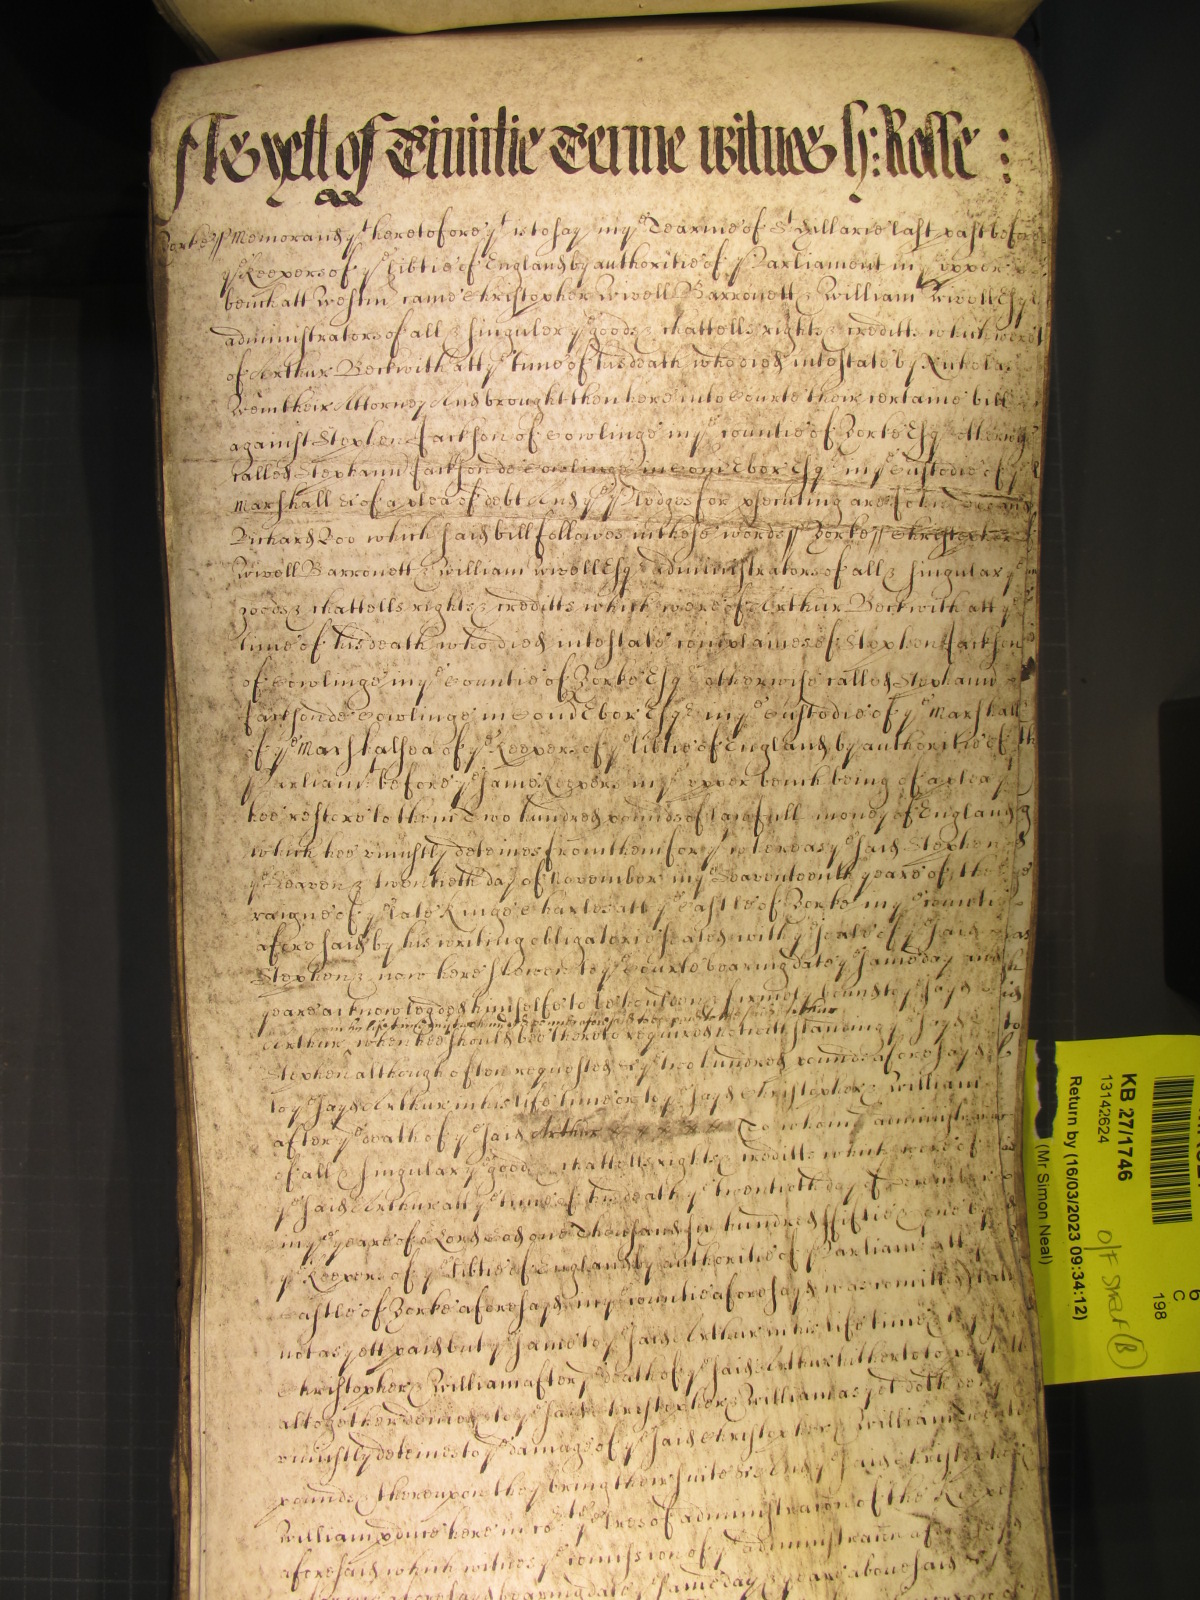 As yett of Trinitie Terme witnes H: Rolle :
Yorke ss Memorand yt heretofore yt is to say in ye Tearme of St Hillarie last past before
ye Keepers of ye libtie of England by authoritie of Parliament in ye upper
bench att Westm came Christopher Wivell Barronett & William Wivell Esqr
administrators of all & singuler ye goods & chattells rights & creditts which were
of Arthur Beckwith att ye time of his death who died intestate by Nicholas
their Attorney And brought then here into Courte their certaine bill
against Stephen Jackson of Cowlinge in ye countie of Yorke Esqr otherwise
called Stephann Jackson de Cowlinge in Com Ebor Esqr in ye Custodie of ye
Marshall &c of a plea of debt And ye Pledges for psecuting are John
Richard Roo which said bill followes in these words ss Yorke ss Christopher
Wivell Barronett & William Wivell Esqr administrators of all & singular ye
goods & chattells rights & creditts which were of Arthur Beckwith att ye
time of his death who died intestate complaines of Stephen Jackson
of Cowlinge in ye Countie of Yorke Esqr otherwise called Stephann
Jackson de Cowlinge in Com Ebor Esqr in ye Custodie of ye Marshall
of ye Marshalsea of ye Keepers of ye libtie of England by authoritie of
Parliamt before ye same Keepers in ye upper bench being of a plea yt
hee restore to them Two hundred pounds of lawfull money of England
which hee uniustly deteines from them for yt whereas ye said Stephen
ye Seaven & twentieth day of November in ye Seaventeenth yeare of the
raigne of ye late Kinge Charles att ye Castle of Yorke in ye countie
aforesaid by his writing obligatorie sealed with ye seale of ye said
Stephen & now here shewen to ye Courte bearing date ye same day and
yeare acknowledged himselfe to be houlden & firmely bound to ye sayd
Arthur when hee should bee thereto required notwithstanding ye sayd
Stephen although often requested ye two hundred pounds aforesayd
to ye sayd Arthur in his life time or to ye sayd Christopher & William
after ye death of ye said Arthur To whom administration
of all & singular ye goods chattells rights & creditts which were of
ye said Arthur att ye time of his death ye twentieth day of December
in ye yeare of or Lord God one Thousand six hundred fiftie & one by
ye Keepers of ye libtie of England by authoritie of Parliamt att ye
Castle of Yorke aforesayd in ye countie aforesayd was comitted hath
not as yett paid but ye same to ye said Arthur in his life time & to ye
Christopher & William after ye death of ye said Arthur hitherto to pay
altogether denied & to ye said Christopher & William as yet doth deny &
uniustly deteines to ye damage of ye said Christopher & William
pounds & thereupon they bring their suite &c And ye said Christopher
William pduce here in co ye lres of administracon of the Keepers
aforesaid which witnes ye comission of ye administracon aforesaid
aforesaid bearing date ye same day & yeare abovesaid
KB 27/1746
13142624
Return by (16/03/2023 09:34:12)
(Mr Simon Neal)
O/F Shelf (B)
C
198